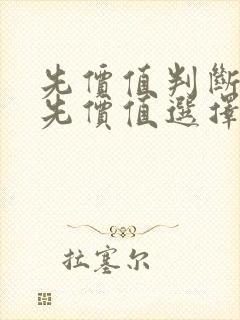 先價值判斷
先價值選擇
拉塞尔